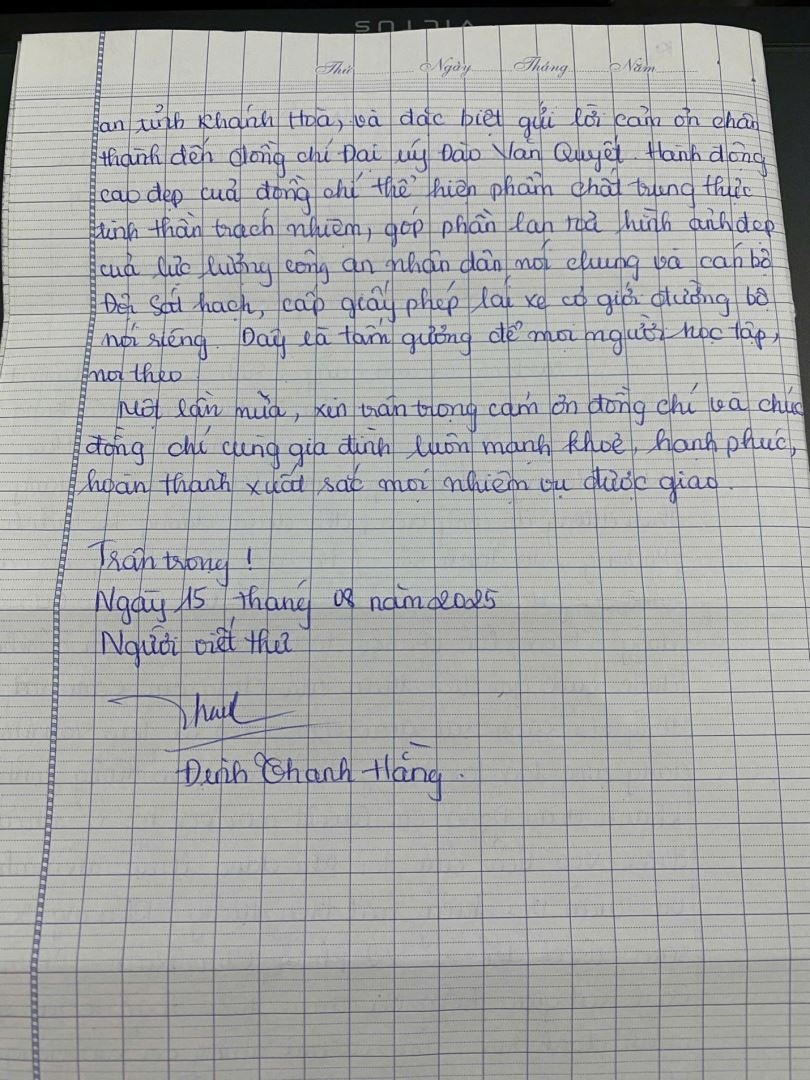 VICTUS
Thứ Ngày Tháng Năm
an tỉnh Khánh Hoà, và đặc biệt gửi lời cảm ơn chân
thành đến đồng chí Đại uý Đào Văn Quyết. Hành động
cao đẹp của đồng chí thể hiện phẩm chất trung thực
tinh thần trách nhiệm, góp phần lan toả hình ảnh đẹp
của lực lượng công an nhân dân nói chung và cán bộ
Đội sát hạch, cấp giấy phép lái xe cơ giới đường bộ
nói riêng. Đây là tấm gương để mọi người học tập,
noi theo
Một lần nữa, xin trân trọng cảm ơn đồng chí và chúc
đồng chí cùng gia đình luôn mạnh khoẻ, hạnh phúc,
hoàn thành xuất sắc mọi nhiệm vụ được giao.
Trân trọng!
Ngày 15 tháng 08 năm 2025
Người viết thư
Đinh Thanh Hằng.